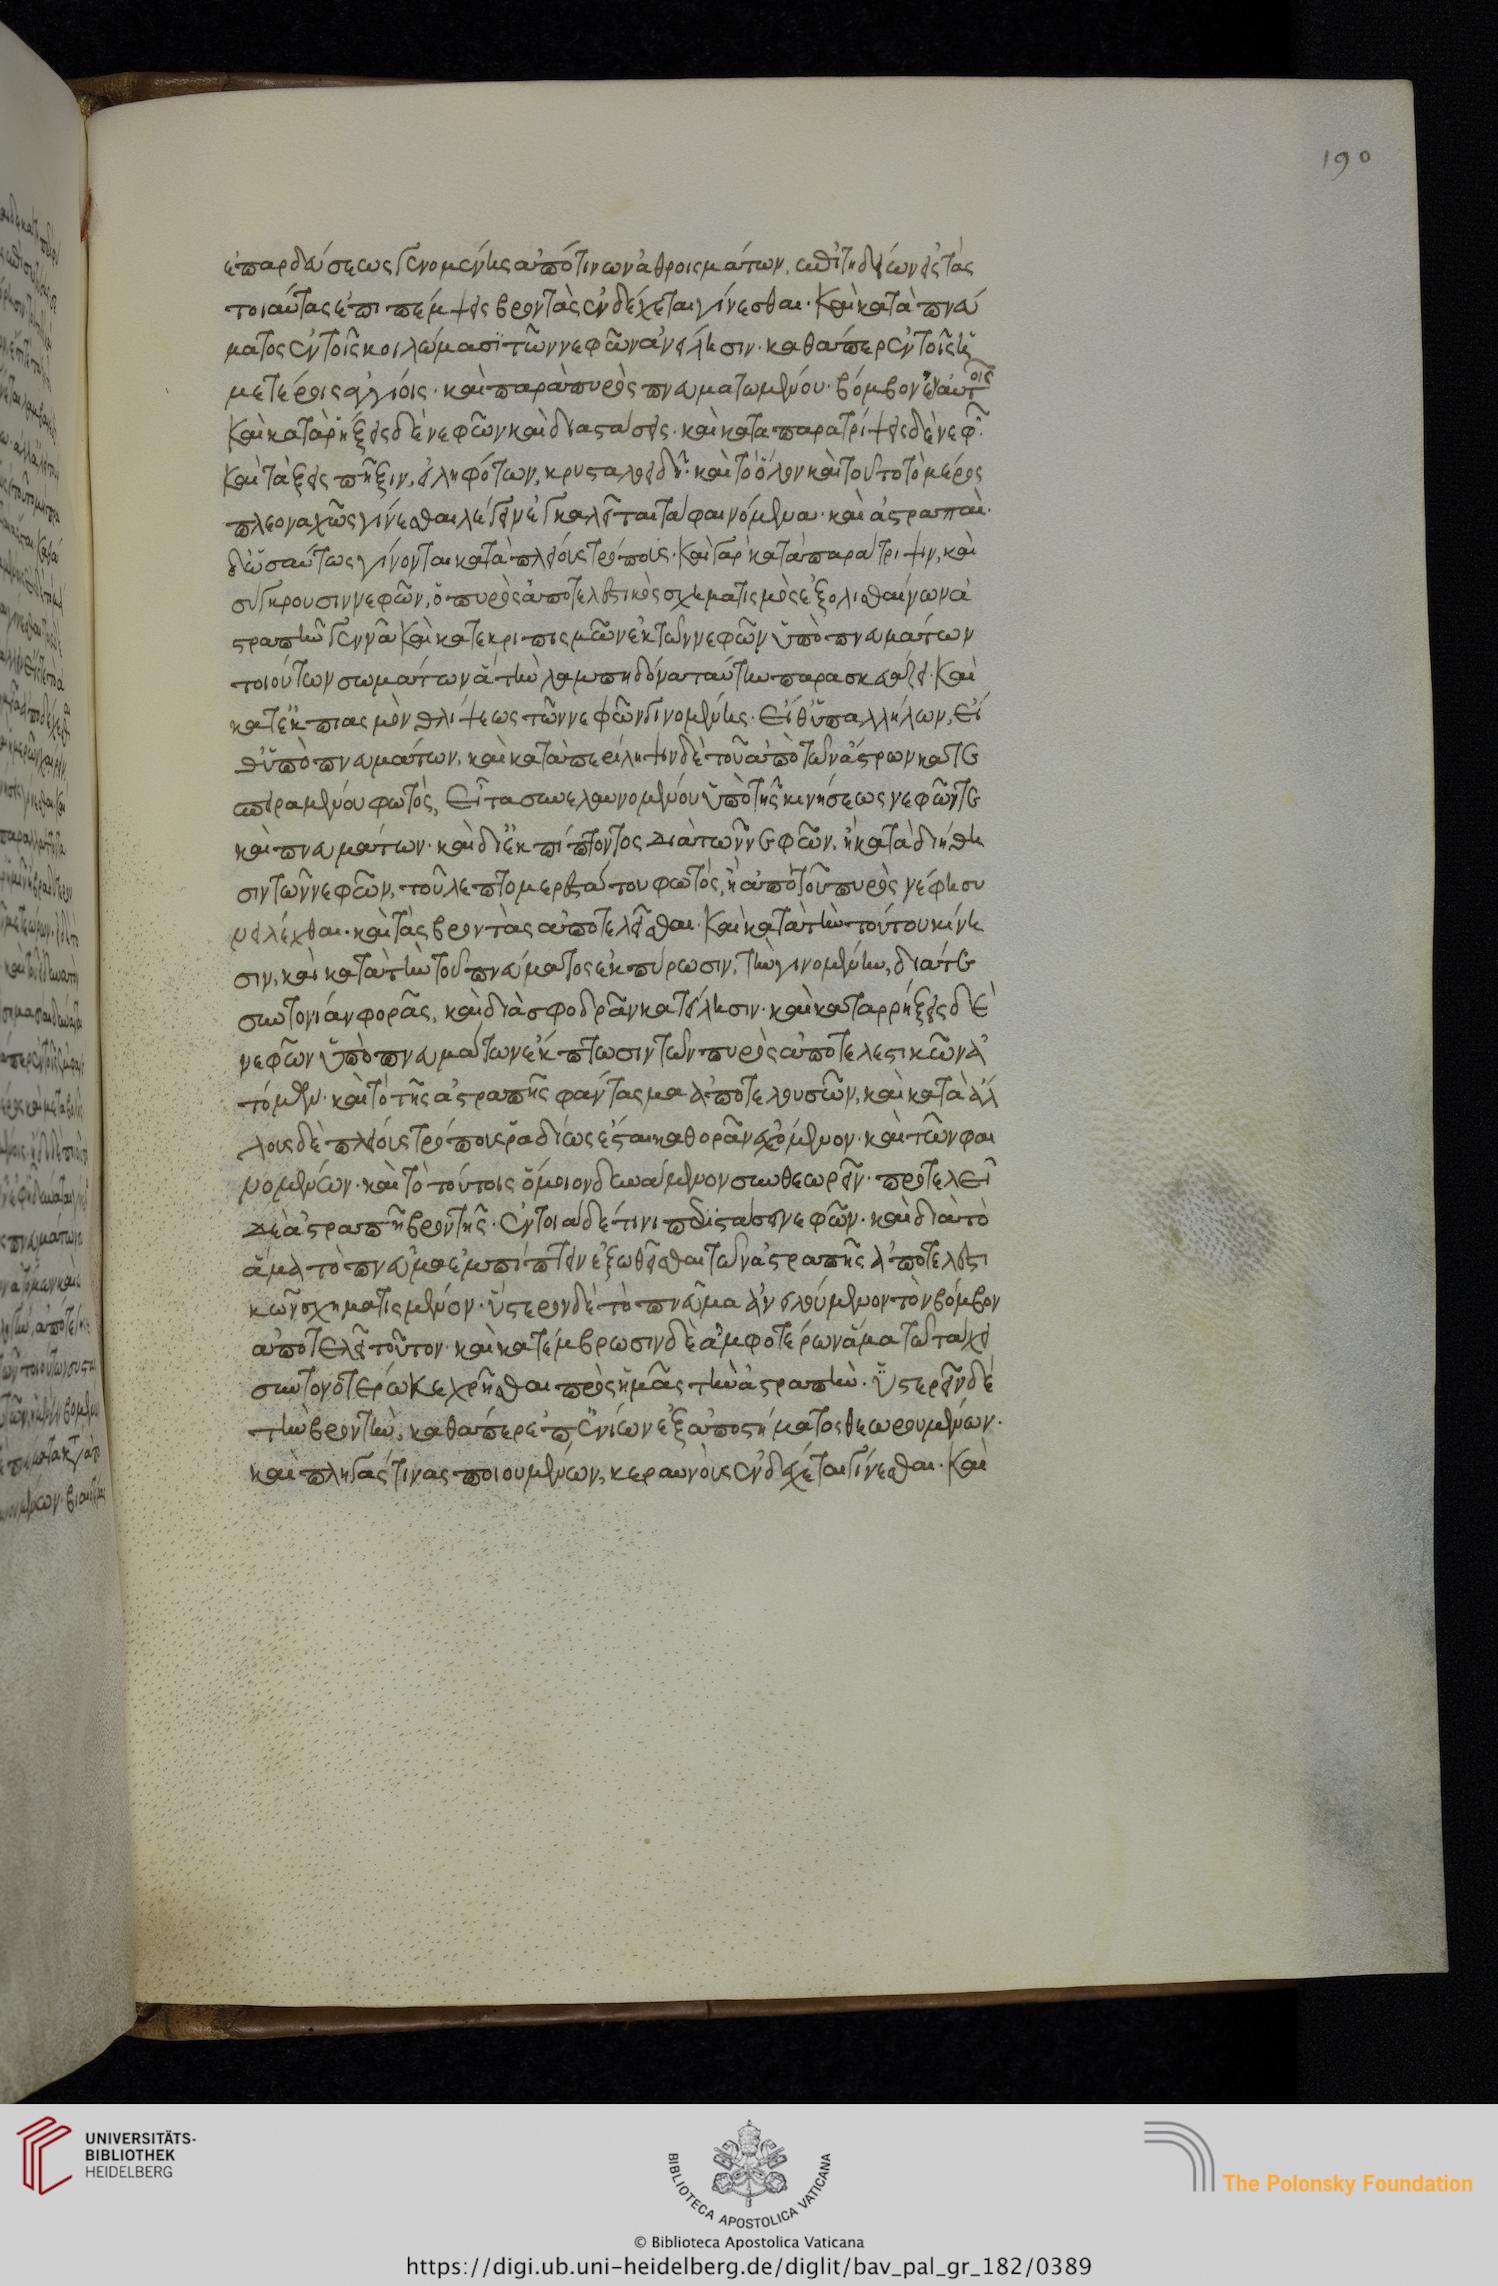 ἐπαρδεύσεως γενομένης ἀπό τινων ἀθροισμάτων, ἐπιτηδείων εἰς τὰς
τοιαύτας ἐπιπέμψεις βροντὰς ἐνδέχεται γίνεσθαι. Καὶ κατὰ πνεύ
ματος ἐν τοῖς κοιλώμασϊ τῶν νεφῶν ἀνείλησιν. καθάπερ ἐν τοῖς ἡ
μετέροις ἀγγείοις. καὶ παρὰ πυρὸς πνευματωμένου. βόμβον ἐν αὐτοῖς
Καὶ κατὰ ῥήξεις δὲ νεφῶν καὶ διαστάσεις. καὶ κατα παρατρίψεις δὲ νεφῶν.
Καὶ τάξεις πῆξιν, εἰληφότων, κρυσταλοειδῆ. καὶ τὸ ὅλον καὶ τοῦτο τὸ μέρος
πλεοναχῶς γίνεσθαι λέγειν ἐγκαλεῖται τὰ φαινόμενα. καὶ ἀστραπαὶ.
δ' ὡσαύτως γίνονται κατὰ πλείους τρόπους. Καὶ γὰρ κατὰ παράτριψιν, καὶ
σύγκρουσιν νεφῶν, ὁ πυρὸς ἀποτελεστικὸς σχηματισμὸς ἐξολισθαίνων ἀ
στραπὴν γεννᾶ Καὶ κατεκριπισμῶν ἐκ τῶν νεφῶν ὑπὸ πνευμάτων
τοιούτων σωμάτων ἃ τὴν λαμπηδόνα ταύτην παρασκευάζει. Καὶ
κατ' ἐκπιασμὸν θλίψεως τῶν νεφῶν γινομένης. Εἴθ' ὑπ' ἀλλήλων, Εἴ
θ' ὑπὸ πνευμάτων. καὶ κατὰ περίληψιν δὲ τοῦ ἀπὸ τῶν ἄστρων κατε
σπειραμένου φωτός, Εἶτα συνελαυνομένου ὑπὸ τῆς κινήσεως νεφῶν τε
καὶ πνευμάτων. καὶ διεκπίπτοντος διὰ τῶν νεφῶν. ἢ κατὰ διήθη
σιν τῶν νεφῶν, τοῦ λεπτομερεστάτου φωτός, ἢ ἀπὸ τοῦ πυρὸς νέφη συ
νειλέχθαι. καὶ τὰς βροντὰς ἀποτελεῖσθαι. Καὶ κατὰ τὴν τούτου κίνη
σιν, καὶ κατὰ τὴν τοῦ πνεύματος ἐκπύρωσιν, τὴν γινομένην, διά τε
συντονίαν φορᾶς, καὶ διὰ σφοδρὰν κατείλησιν. καὶ κατὰ ῥήξεις δὲ
νεφῶν ὑπὸ πνευμάτων ἔκπτωσιν τῶν πυρὸς ἀποτελεστικῶν ἀ
τόμων. καὶ τὸ τῆς ἀστραπῆς φάντασμα ἀποτελουσῶν, καὶ κατὰ ἄλ
λους δὲ πλείους τρόπους ῥαδίως ἔσται καθορᾶν ἐχόμενον. καὶ τῶν φαι
νομένων. καὶ τὸ τούτοις ὅμοιον δυνάμενον συνθεωρεῖν. προτελεῖ
δὲ ἀστραπὴ βροντῆς. ἐν τοιᾷδέ τινι περιστάσει νεφῶν. καὶ διὰ τὸ
ἅμα τὸ πνεῦμα ἐμπίπτειν ἐξωθεῖσθαι τῶν ἀστραπῆς ἀποτελεστι
κῶν σχηματισμένον. ὕστερον δὲ τὸ πνεῦμα ἀνειλούμενον τὸν βόμβον
ἀποτελεῖ τοῦτον. καὶ κατέμβρωσιν δὲ ἀμφοτέρων ἅμα τῷ τάχει
συντονοτέρω κεχρῆσθαι πρὸς ἡμᾶς τὴν ἀστραπήν. ὑστερεῖν δὲ
τὴν βροντήν, καθάπερ ἐπ' ἐνίων ἐξ ἀποστήματος θεωρουμένων.
καὶ πληγάς τινας ποιουμένων, κεραυνοὺς ἐνδέχεται γίνεσθαι. Καὶ
190
UNIVERSITÄTS-
BIBLIOTHEK
HEIDELBERG
BIBLIOTECA APOSTOLICA VATICANA
The Polonsky Foundation
© Biblioteca Apostolica Vaticana
https://digi.ub.uni-heidelberg.de/diglit/bav_pal_gr_182/0389